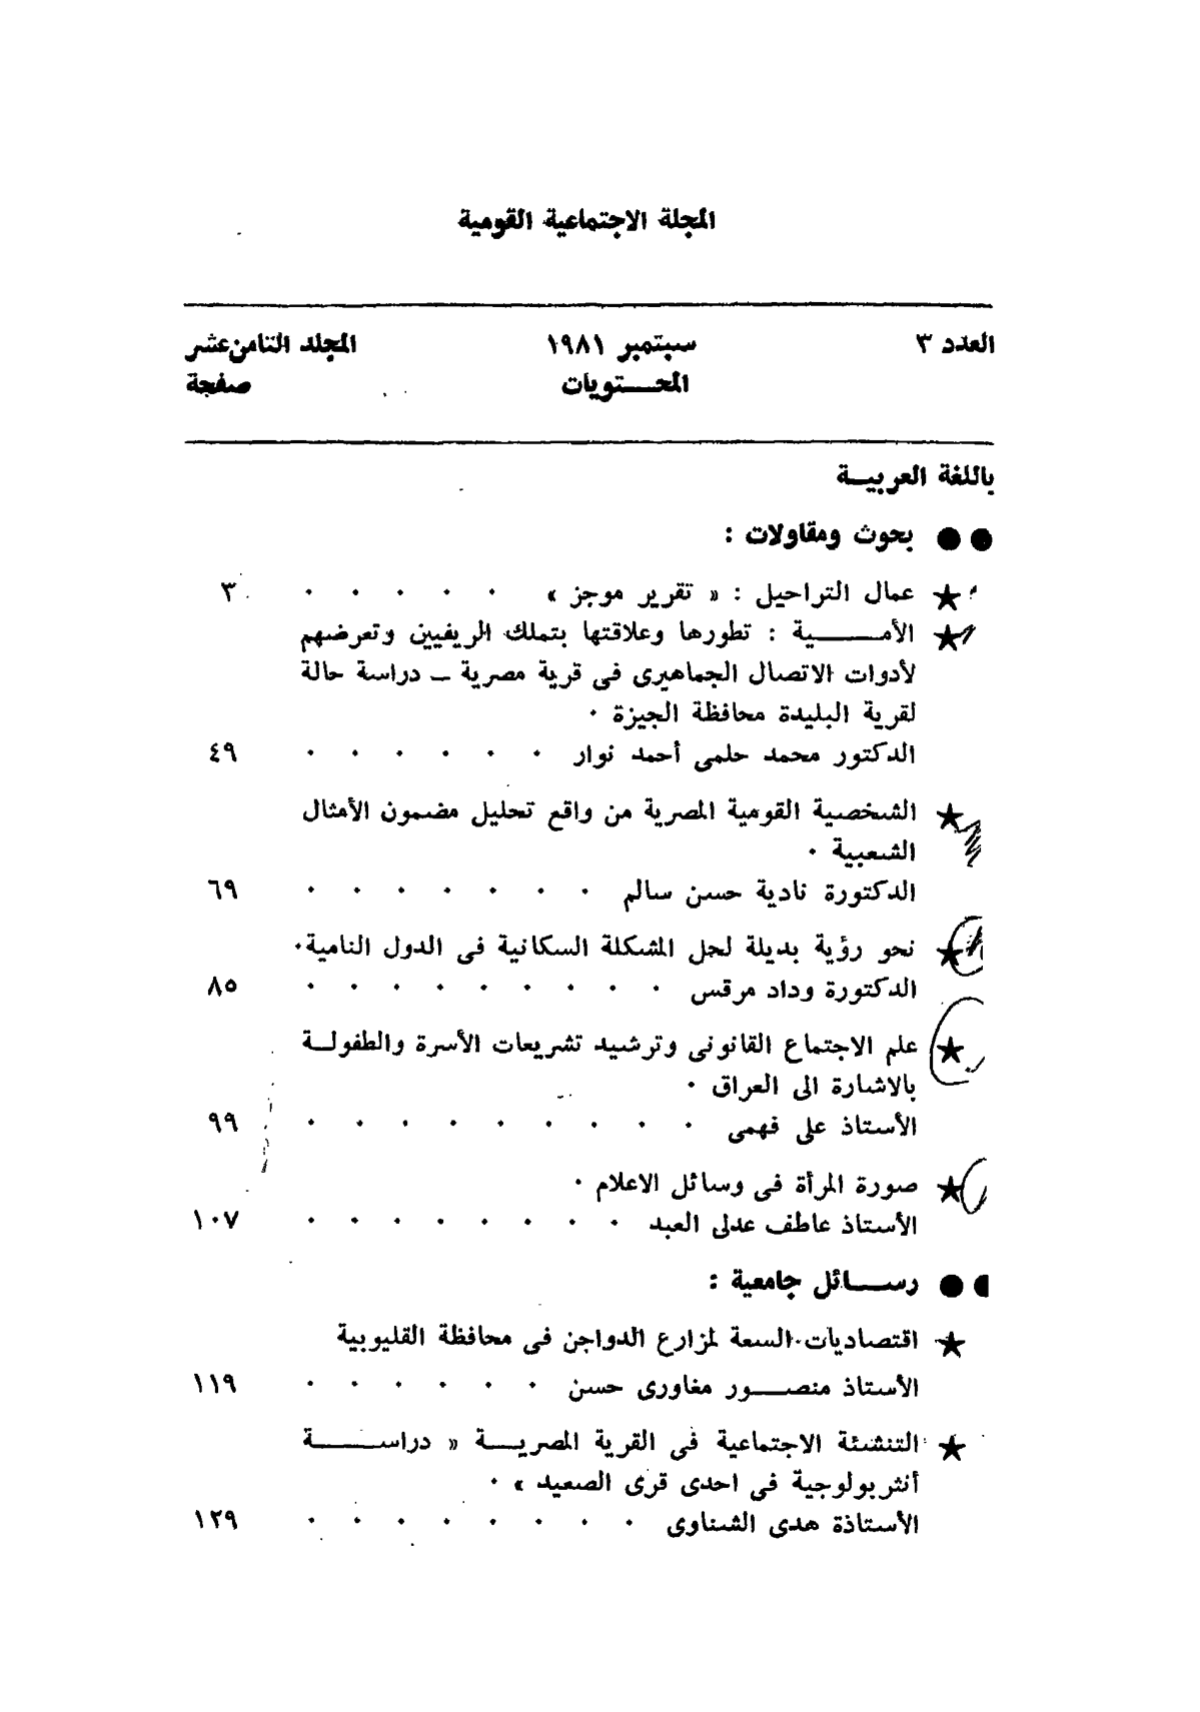 المجلة الاجتماعية القومية
العدد ٣ سبتمبر ١٩٨١ المجلد الثامن عشر
المحـــتويات صفحة
باللغة العربيـة
●● بحوث ومقاولات :
★ عمال التراحيل : « تقرير موجز » ٠ ٠ ٠ ٠ ٠ ٣
★ الأمـــــية : تطورها وعلاقتها بتملك الريفيين وتعرضهم
لأدوات الاتصال الجماهيرى فى قرية مصرية ــ دراسة حالة
لقرية البليدة محافظة الجيزة ٠
الدكتور محمد حلمى أحمد نوار ٠ ٠ ٠ ٠ ٠ ٠ ٤٩
★ الشخصية القومية المصرية من واقع تحليل مضمون الأمثال
الشعبية ٠
الدكتورة نادية حسن سالم ٠ ٠ ٠ ٠ ٠ ٠ ٠ ٦٩
★ نحو رؤية بديلة لحل المشكلة السكانية فى الدول النامية٠
الدكتورة وداد مرقس ٠ ٠ ٠ ٠ ٠ ٠ ٠ ٠ ٠ ٨٥
★ علم الاجتماع القانونى وترشيد تشريعات الأسرة والطفولـة
بالاشارة الى العراق ٠
الأستاذ على فهمى ٠ ٠ ٠ ٠ ٠ ٠ ٠ ٠ ٠ ٩٩
★ صورة المرأة فى وسائل الاعلام ٠
الأستاذ عاطف عدلى العبد ٠ ٠ ٠ ٠ ٠ ٠ ٠ ٠ ١٠٧
●● رســـائل جامعية :
★ اقتصاديات السعة لمزارع الدواجن فى محافظة القليوبية
الأستاذ منصـــور مغاورى حسن ٠ ٠ ٠ ٠ ٠ ٠ ١١٩
★ التنشئة الاجتماعية فى القرية المصريـــة « دراســـــة
أنثربولوجية فى احدى قرى الصعيد » ٠
الأستاذة هدى الشناوى ٠ ٠ ٠ ٠ ٠ ٠ ٠ ٠ ١٢٩